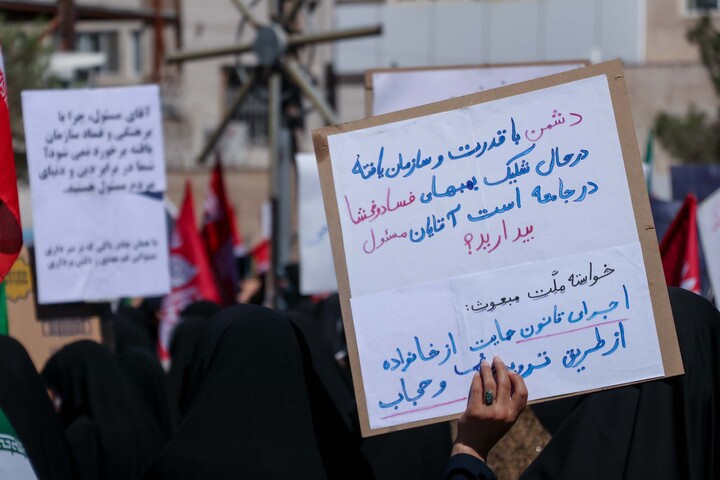 آقای مسئول، چرا با
برهنگی و فساد سازمان
یافته برخورد نمی شود؟
شما در برابر دین و دنیای
مردم مسئول هستید.
دشمن با قدرت و سازمان یافته
درحال شلیک بمبهای فساد و فحشا
در جامعه است آقایان مسئول
بیدارید؟
خواسته ملّت مبعوث:
اجرای قانون حمایت از خانواده
از طریق ترویج عفاف و حجاب